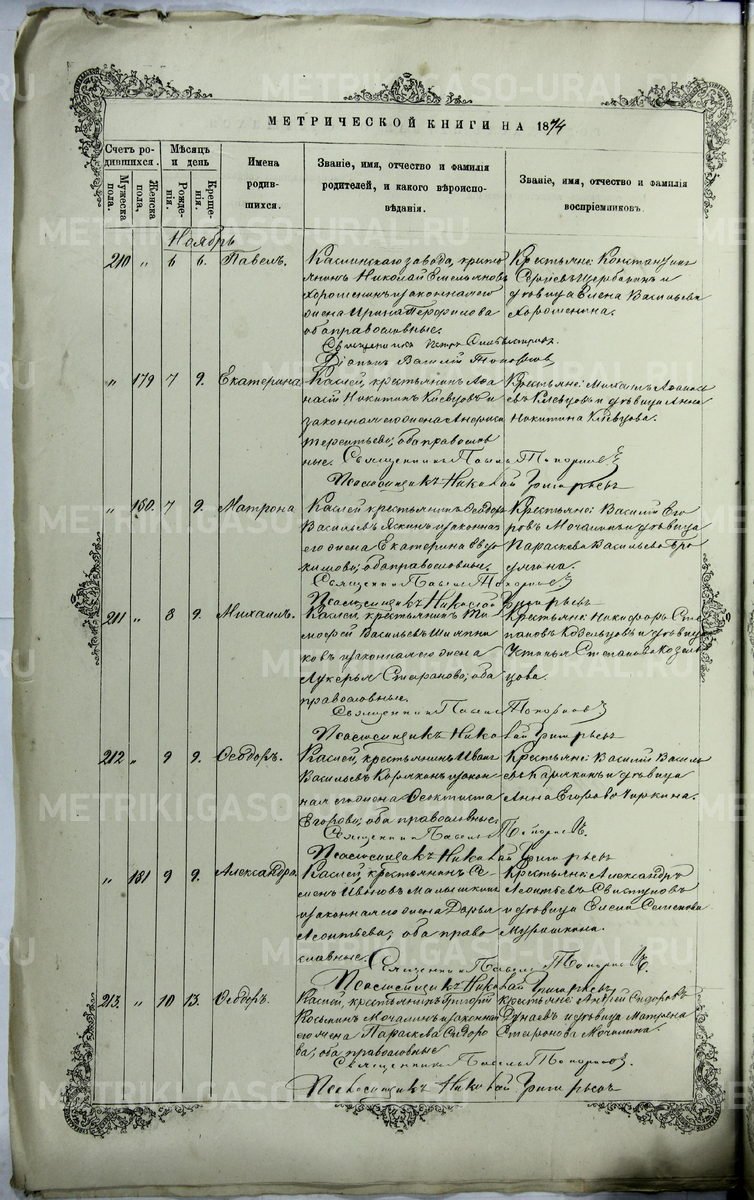 МЕТРИЧЕСКОЙ КНИГИ НА 1874
Счетъ ро-
дившихся.
Мужеска
пола.
Женска
пола,
Мѣсяцъ
и день
Рожде-
нія.
Креще-
нія.
Имена
родив-
шихся.
Званіе, имя, отчество и фамилія
родителей, и какого вѣроиспо-
вѣданія.
Званіе, имя, отчество и фамилія
воспріемниковъ.
Ноябрь
210 " 6 6. Павелъ.
Каслинскаго завода, кресть
янинъ Николай Емельяновъ
Хорошенинъ и законная его
жена Ирина Перфилова
оба православные.
Священникъ Петръ
Діаконъ Василій Топорковъ
Крестьяне: Константинъ
Сергѣевъ Щербаковъ и
дѣвица Елена Васильева
Хорошенина.
" 179 7 9. Екатерина
Каслей, крестьянинъ Афа
насій Никитинъ Клевцовъ и
законная его жена Анфиса
Терентьева, оба православ
ные. Священникъ Павелъ
Псаломщикъ Николай Григорьевъ
Крестьяне: Михаилъ
евъ Клевцовъ и дѣвица Анна
Никитина Клевцова.
" 180. 7 9. Матрона
Каслей, крестьянинъ Ѳеодоръ
Васильевъ Яскинъ и законная
его жена Екатерина Евдо
кимова, оба православные.
Священникъ Павелъ
Псаломщикъ Николай Григорьевъ
Крестьяне: Василій Его
ровъ Мочалинъ и дѣвица
Параскева Васильева
211 " 8 9. Михаилъ.
Каслей, крестьянинъ Ти
мофей Васильевъ Ширяни
ковъ и законная его жена
Лукерья оба
православные.
Священникъ Павелъ
Псаломщикъ Николай Григорьевъ
Крестьяне: Никифоръ Сте
пановъ Козельцовъ и дѣвица
Устинья Степанова Козель
цова.
212 " 9 9. Ѳеодоръ.
Каслей, крестьянинъ Иванъ
Васильевъ Карякинъ и закон
ная его жена Ѳеоктиста
Егорова, оба православные.
Священникъ Павелъ
Псаломщикъ Николай Григорьевъ
Крестьяне: Василій Василь
евъ Карякинъ и дѣвица
Анна Егорова Чиркина.
" 181 9 9. Александра
Каслей, крестьянинъ Се-
менъ Ивановъ Малышкинъ
и законная его жена Дарья
Леонтьева, оба право
славные.
Священникъ Павелъ
Псаломщикъ Николай Григорьевъ
Крестьяне: Александръ
Леонтьевъ Свистуновъ
и дѣвица Елена Семенова
Мурашкина.
213. " 10 13. Ѳеодоръ.
Каслей, крестьянинъ Григорій
Косминъ Мочалинъ и законная
его жена Параскева Сидоро
ва, оба православные
Священникъ Павелъ
Псаломщикъ Николай Григорьевъ
крестьяне: Андрей Сидоровъ
Дунаевъ и дѣвица Матрена
Мочалина.
METRIKI.GASO-URAL.RU